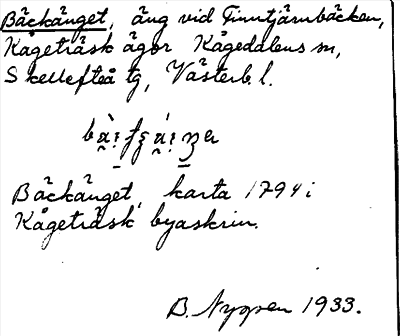 Bäckänget, äng vid Finntjärnbäcken,
Kågeträsk ägor Kågedalens sn,
Skellefteå tg, Västerb. l.
Bäckänget, karta 1794 i
Kågeträsk byaskrin.
B. Nygren 1933.